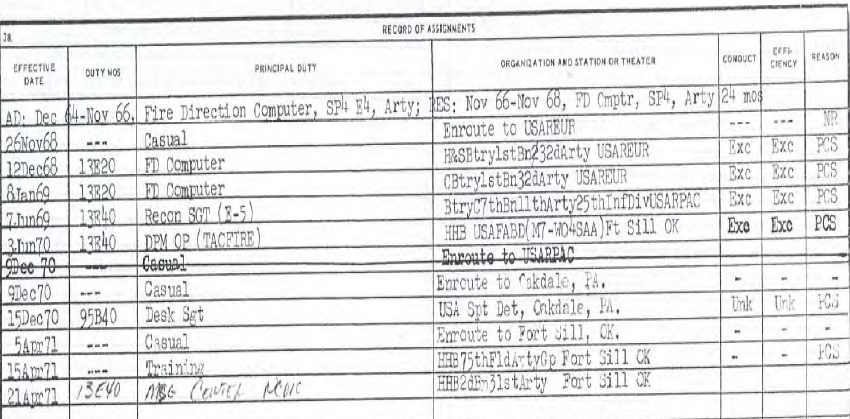 38. RECORD OF ASSIGNMENTS
EFFECTIVE DATE DUTY MOS PRINCIPAL DUTY ORGANIZATION AND STATION OR THEATER CONDUCT EFFI-CIENCY REASON
AD: Dec 64-Nov 66, Fire Direction Computer, SP4 E4, Arty; RES: Nov 66-Nov 68, FD Cmptr, SP4, Arty 24 mos
26Nov68 --- Casual Enroute to USAREUR --- --- NR
12Dec68 13E20 FD Computer H&SBtry1stBn232dArty USAREUR Exc Exc PCS
8Jan69 13E20 FD Computer CBtry1stBn32dArty USAREUR Exc Exc PCS
7Jun69 13E40 Recon SGT (E-5) BtryC7thBn11thArty25thInfDivUSARPAC Exc Exc PCS
3Jun70 13E40 DPM OP (TACFIRE) HHB USAFABD(M7-WO4SAA)Ft Sill OK Exc Exc PCS
9Dec 70 --- Casual Enroute to USARPAC
9Dec70 --- Casual Enroute to Oakdale, PA. - -
15Dec70 95B40 Desk Sgt USA Spt Det, Oakdale, PA. Unk Unk PCS
5Apr71 --- Casual Enroute to Fort Sill, OK. - - -
15Apr71 --- Training HHB75thFldArtyGp Fort Sill OK - - PCS
21Apr71 13E40 CENTER HHB2dBn31stArty Fort Sill OK